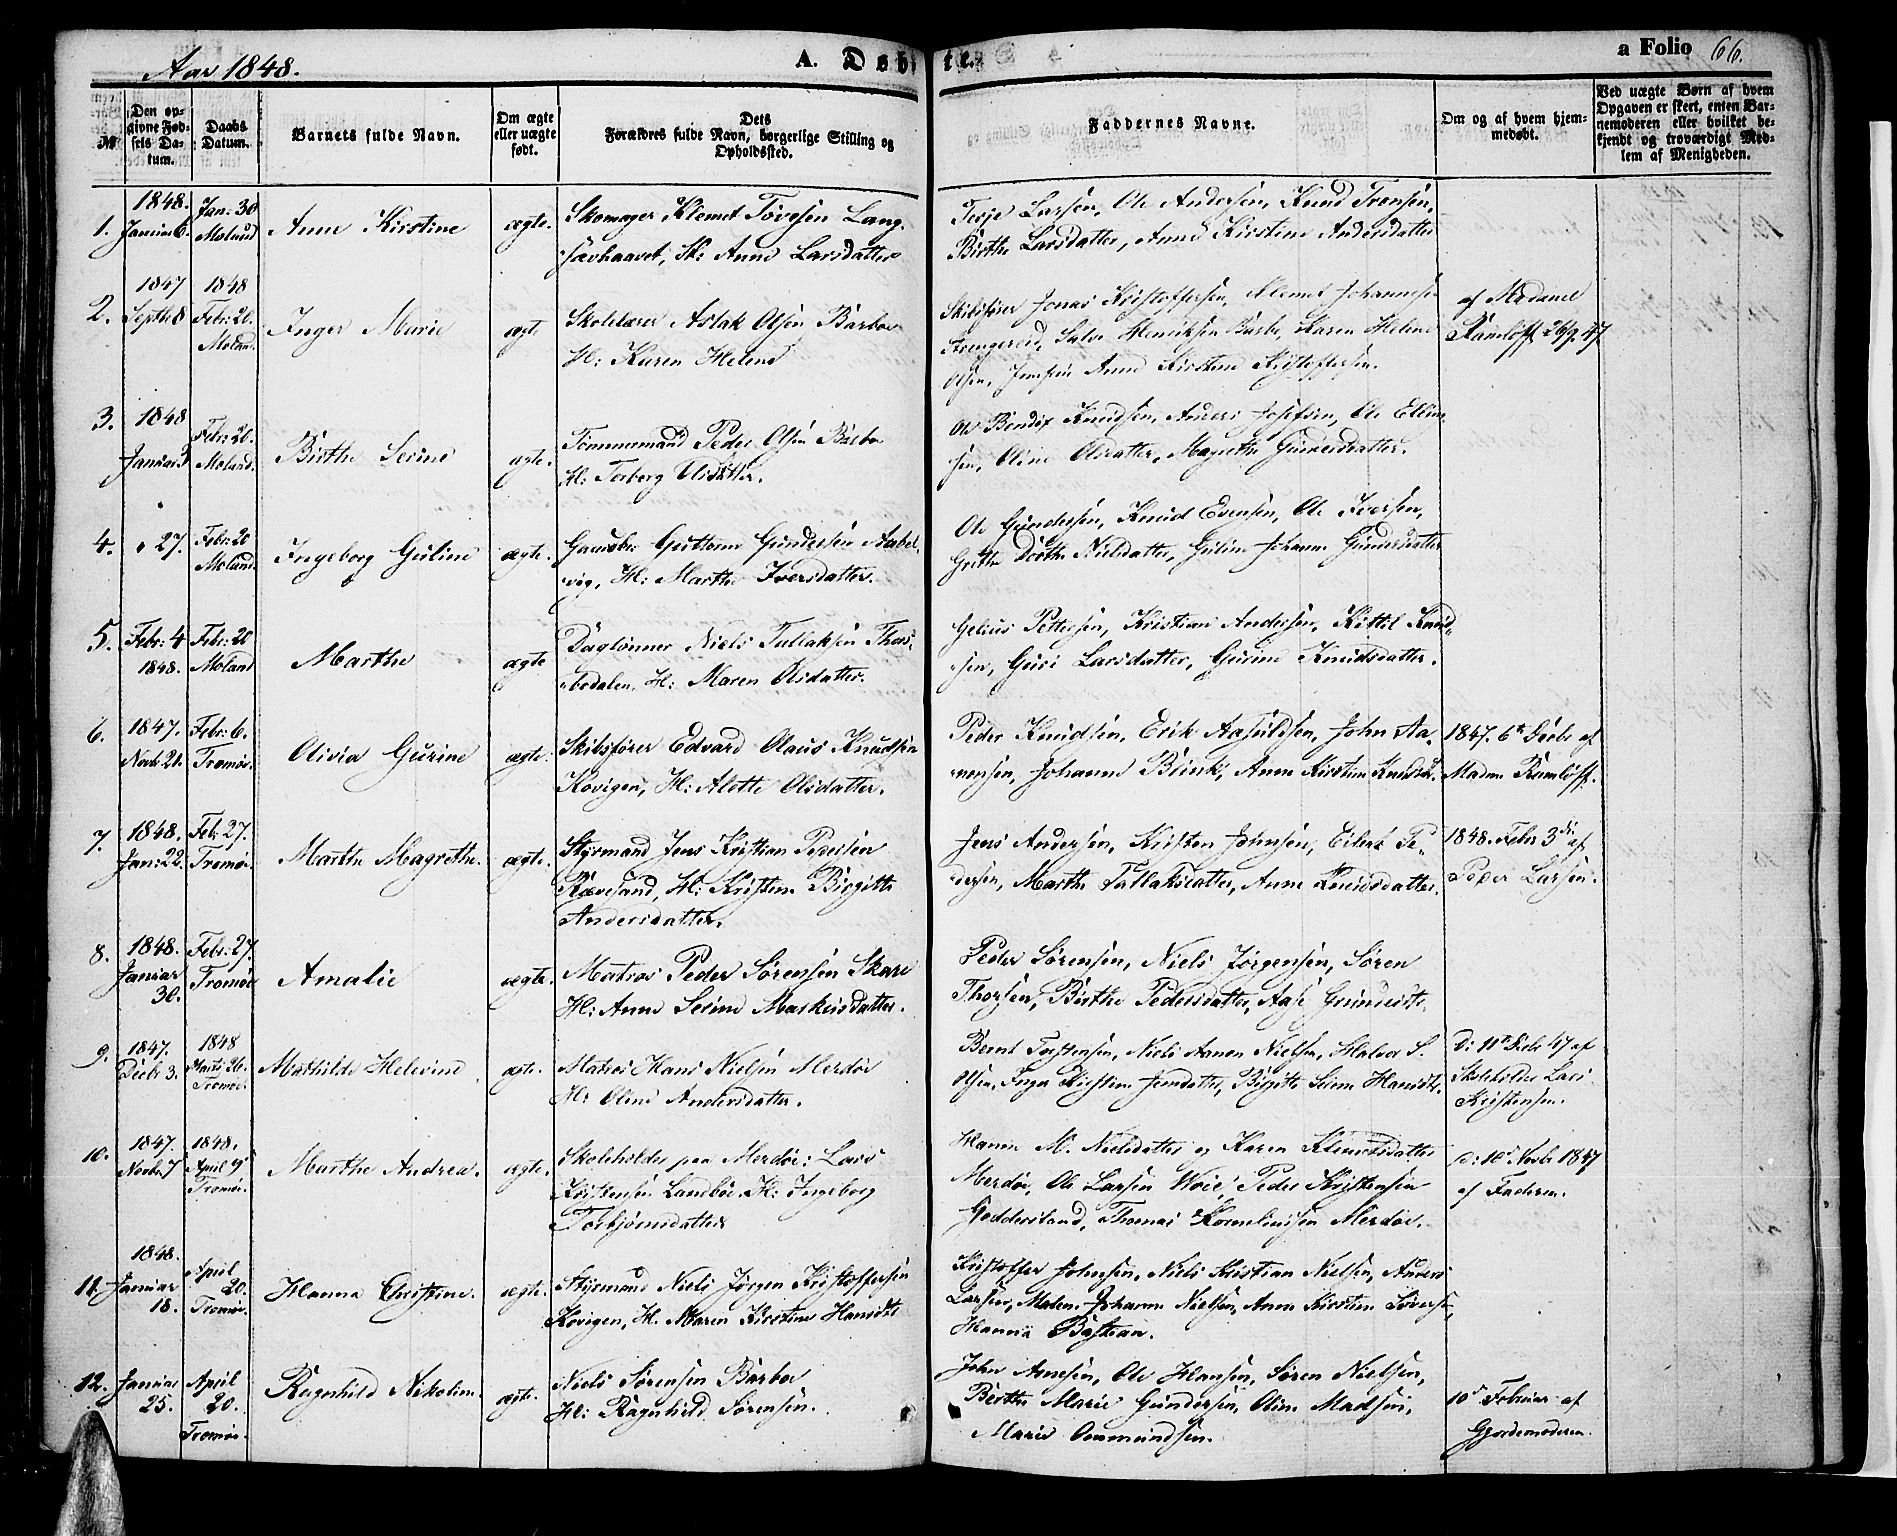 Aar 1848.
A. Døbte.
a Folio 66.
No
Den opgivne Fødsels Datum.
Daabs Datum.
Barnets fulde Navn.
Om ægte eller uægte født.
Dets Forældres fulde Navn, borgerlige Stilling og Opholdssted.
Faddernes Navne.
Om og af hvem hjemmedøbt.
Ved uægte Børn af hvem Opgaven er skeet, enten Barnemoderen eller hvilket bekjendt og troværdigt Medlem af Menigheden.
1. 1848. Januar 6. Jan: 30 Moland Anne Kirstine ægte. Skomager Klemet Tovesen Lang-
sævhaavet, H: Anne Larsdatter
Terje Larsen, Ole Andersen, Knud Tronsen,
Birthe Larsdatter, Anne Kirstine Andersdatter
2. 1847 Septbr 8 1848 Febr: 20. Moland. Inger Marie ægte Skolelærer Aslak Olsen Barbo
H: Karen Helene
Skibsfører Jonas Kristoffersen, Klemet Johannesen
Strengereid, Salve Henriksen Barbo, Karen Helene
Olsen, Jomfru Anne Kirstine Kristoffersen.
af Madame
Ramløff 26/9. 47
3. 1848 Januar 3 Febr: 20. Moland. Birthe Serine ægte. Tømmermand Peder Olsen Barbo
H: Torborg Olsdatter.
Ole Bendix Knudsen, Anders Josefsen, Ole Ellin-
sen, Oline Olsdatter, Magrethe Gundersdatter.
4. " 27. Febr: 20 Moland. Ingeborg Guline ægte. Gaardbr: Guttorm Gundersen Aabel-
vig, H: Marthe Iversdatter.
Ole Gundersen, Knud Evensen, Ole Iversen,
Grethe Dorthe Nielsdatter, Guline Johanne Gundersdatter
5. Febr: 4 1848. Febr: 20 Moland Marthe ægte Daglønner Niels Tallaksen Thors-
bodalen, H: Maren Olsdatter.
Gelius Pettersen, Kristian Andersen, Kittil Knud-
sen, Guri Larsdatter, Gurine Knudsdatter.
6. 1847. Novbr 21. Febr: 6. Tromø. Olivia Gurine ægte. Skibsfører Edvard Olaus Knudsen
Kovigen, H: Alette Olsdatter.
Peder Knudsen, Erik Aasuldsen, John Aa-
nonsen, Johanne Brink, Anne Kirstine Knudsdt.
1847. 6te Decbr af
Madm Ramløff.
7. 1848. Jan: 22. Feb: 27. Tromø. Marthe Magrethe. ægte. Styrmand Jens Kristian Pedersen
Rævesand, H: Kirstine Birgitte
Andersdatter.
Jens Andersen, Kirsten Johnsen, Eilert Pe-
dersen, Marthe Tallaksdatter, Anne Knudsdatter.
1848. Febr 3die af
Peder Larsen.
8. 1848. Januar 30. Febr: 27. Tromø Amalie ægte. Matros Peder Sørensen Skare
H: Anne Serine Markusdatter.
Peder Sørensen, Niels Jørgensen, Søren
Thorsen, Birthe Pedersdatter, Aase Gundersdt.
9. 1847. Decbr 3. 1848 Marts 26. Tromø. Mathilde Helevine ægte. Matros Hans Nielsen Merdø
H: Oline Andersdatter.
Bernt Torstensen, Niels Aanon Nielsen, Halvor S.
Olsen, Inger Kirstine Jensdatter, Birgitte Serine Hansdt.
D: 11te Decbr 47 af
Skoleholder Lars
Kristensen.
10. 1847. Novbr 7 1848. April 9de Tromø. Marthe Andrea. ægte. Skoleholder paa Merdø: Lars
Kristensen Landbø. H: Ingeborg
Torbjørnsdatter
Hanne M. Nielsdatter og Karen Klemetsdatter
Merdø, Ole Larsen Woie, Peder Kristensen
Godderstand, Thomas Kornelinssen Merdø.
D: 10de Novbr 1847
af Faderen.
11. 1848. Januar 18. April 20. Tromø. Hanna Christine. ægte. Styrmand Niels Jørgen Kristoffersen
Kovigen, H. Maren Kirstine Hansdt
Kristoffer Johnsen, Niels Kristian Nielsen, Anders
Larsen, Maren Johanne Nielsen, Anne Kirstine Siversen,
Hanna Bastian.
12. Januar 25. April 20. Tromø. Ragnhild Nikoline. ægte. Niels Sørensen Barbo
H: Ragnhild Sørensen.
John Arnesen, Ole Hansen, Søren Nielsen,
Birthe Marie Gundersen, Oline Madsen,
Marie Ommundsen.
10de Februar af
Gjordemoderen.